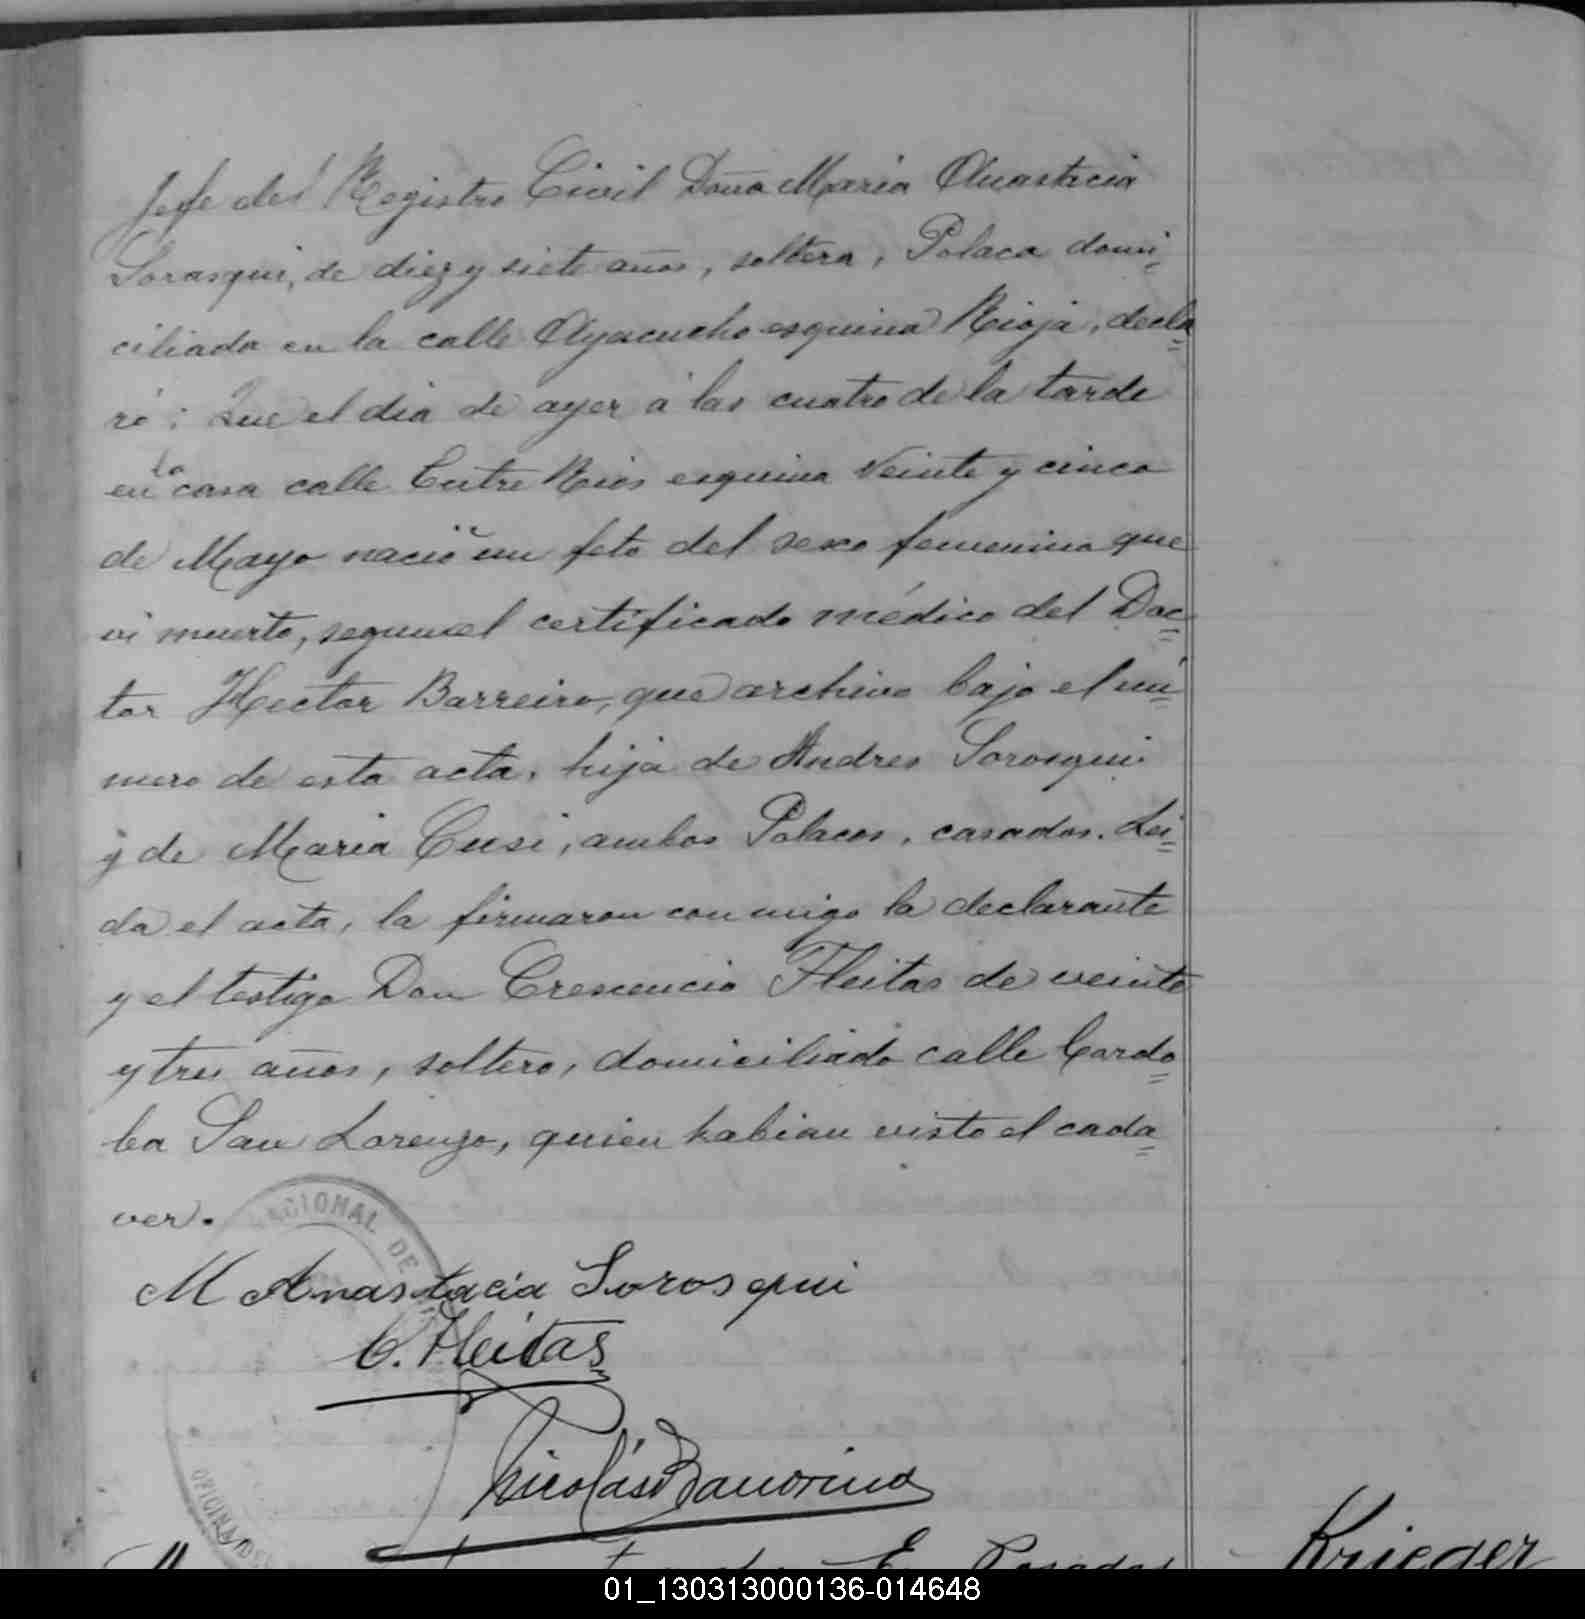 Jefe del Registro Civil Doña Maria Anastacia
Sorasqui, de diez y siete años, soltera, Polaca domi=
ciliada en la calle Ayacucho esquina Rioja, decla=
ró: Que el dia de ayer á las cuatro de la tarde
en la casa calle Entre Rios esquina Veinte y cinco
de Mayo nació un feto del sexo femenino que
vi muerto, segun el certificado médico del Doc=
tor Hector Barreiro, que archivo bajo el nú=
mero de esta acta, hija de Andres Sorosqui
y de Maria Cusi, ambos Polacos, casados. Lei=
da el acta, la firmaron conmigo la declarante
y el testigo Don Crescencio Fleitas de veinte
y tres años, soltero, domiciliado calle Cordo=
ba San Lorenzo, quien habian visto el cada=
ver.
NACIONAL DE
M Anastacia Sorosqui
C. Fleitas
Nicolás
OFICINA DE
E. Posadas
Krieger
01_130313000136-014648